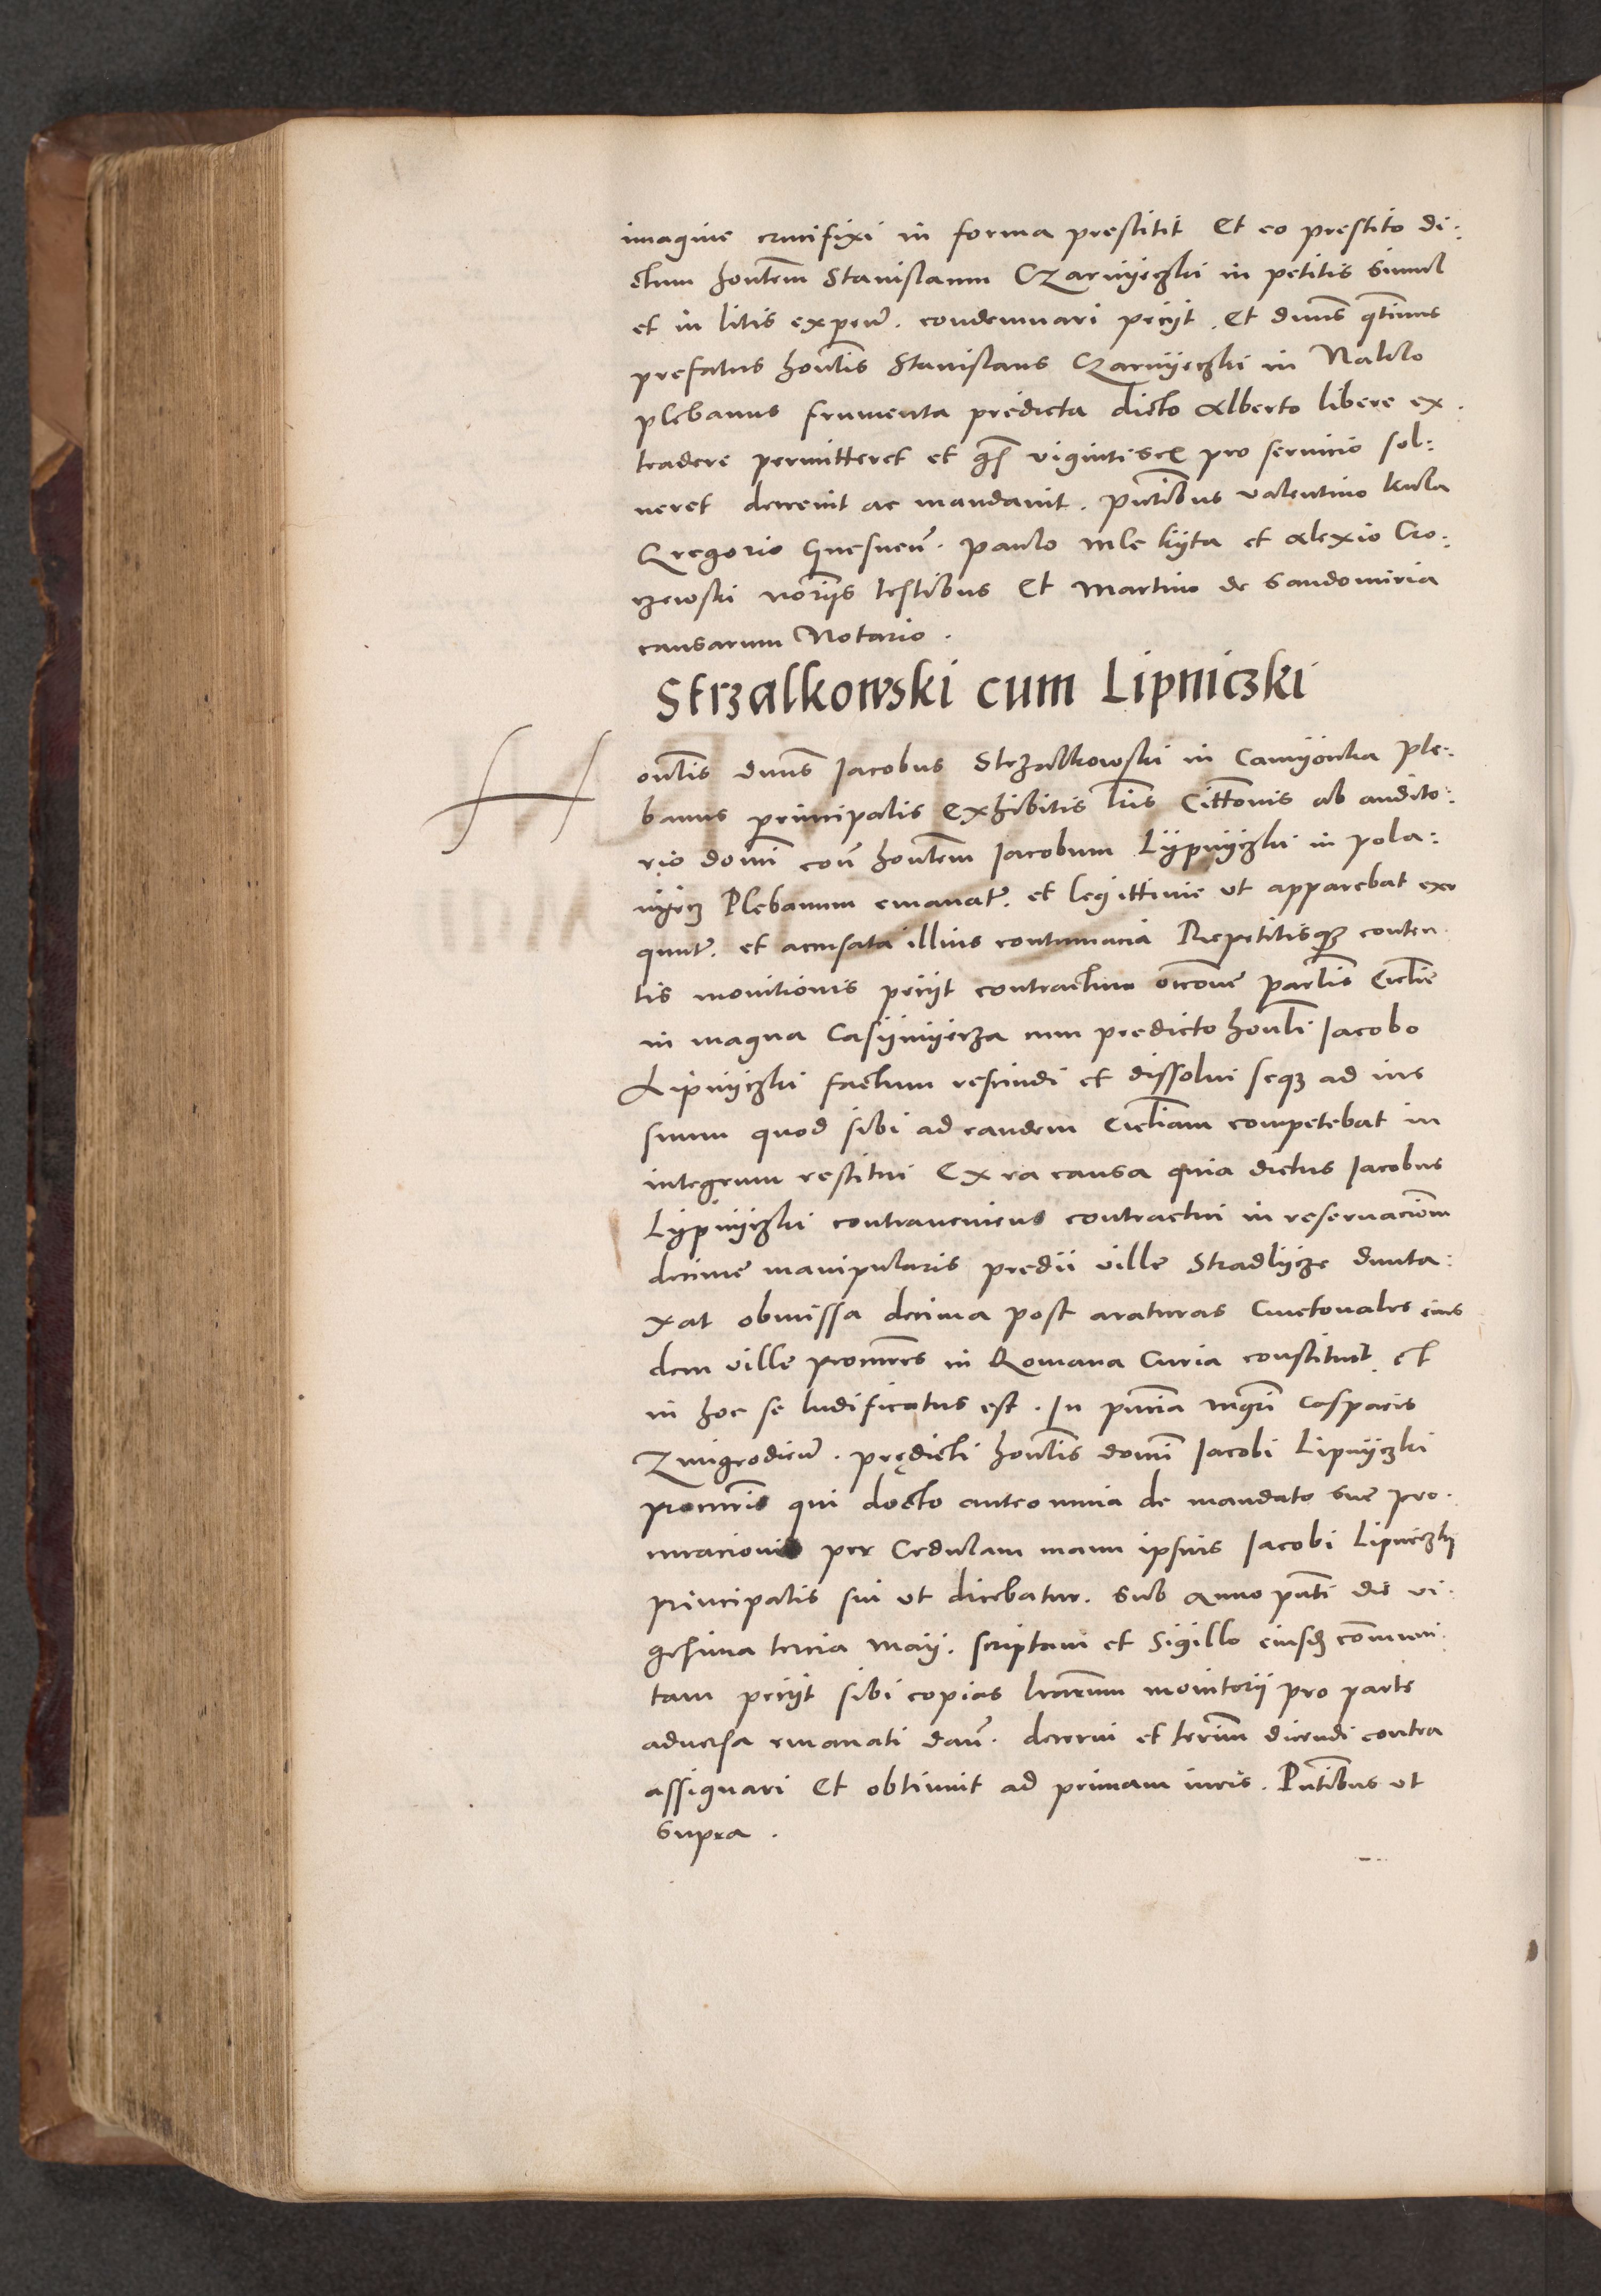 imagine crucifixi in forma prestitit Et eo prestito di:
ctum hontem Stanislaum CZarnyeczki in petitis simul
et in litis expen. condemnari peciit. Et dnus qtinus
prefatus hontis Stanislaus Czarnyeczki in Naklo
plebanus frumenta predicta dicto Alberto libere ex.
tradere permitteret et viginti pro servicio sol:
veret decrevit ac mandavit. Pntibus Valentino kula
Gregorio Gnesnen. Paulo mle kyta et Alexio Cro:
czewski noriis testibus Et Martino de Sandomiria
causarum Notario.
Strzalkowski cum Lipniczki
H ontis dnus Jacobus Strzalkowski in Camyonka ple:
banus principalis Exhibitis lris Cittonis ab audito:
rio domi con hontem Jacobum Lypnyczki in pola:
nyecz Plebanum emanat. et legittime ut apparebat exe
qunt. et accusata illius contumacia Repetitisq conten.
tis monitionis peciit contractum occone partis Ecclie
in magna Casymyerza cum predicto honli Jacobo
Lipnyczki factum rescindi et dissolvi seq ad ius
suum quod sibi ad eandem Eccliam competebat in
integrum restitui Ex ea causa quia dictus Jacobus
Lypnyczki contraveniens contractui in reservacionem
decime manipularis predii ville Stradlycze dunta:
xat obmissa decima post araturas Cmetonales eius
dem ville procures in Romana Curia constituit Et
in hoc se ludificatus est. In pncia mgri Casparis
Zmigrodicen. predicti hontis domi Jacobi Lipnyczki
procuris qui docto ante omnia de mandato sue pro.
curacionis per Cedulam manu ipsius Jacobi Lipniczki
principalis sui ut dicebatur. Sub Anno pnti die vi.
gesima tercia Maij. scriptam et Sigillo eiusd communi.
tam peciit sibi copias lrarum monitorii pro parte
adversa emanati dan. decerni et termi dicendi contra
assignari Et obtinuit ad primam iuris. Pntibus ut
supra.